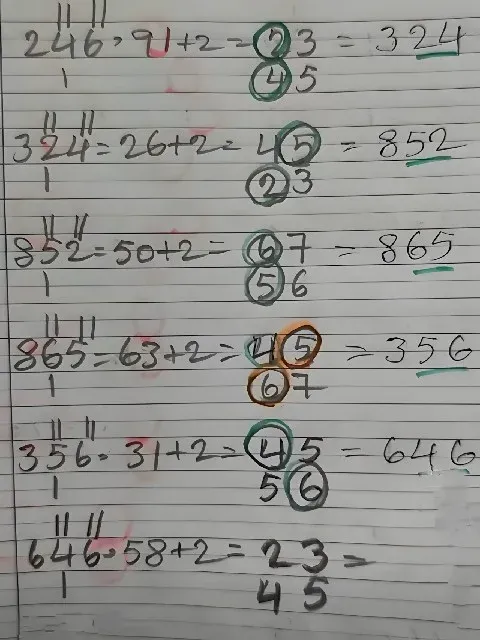 246 · 91+2 = 23 = 324
1 45
324 = 26+2 = 45 = 852
1 23
852 = 50+2 = 67 = 865
1 56
865 = 63+2 = 45 = 356
1 67
356 · 31+2 = 45 = 646
1 56
646 · 58+2 = 23 =
1 45